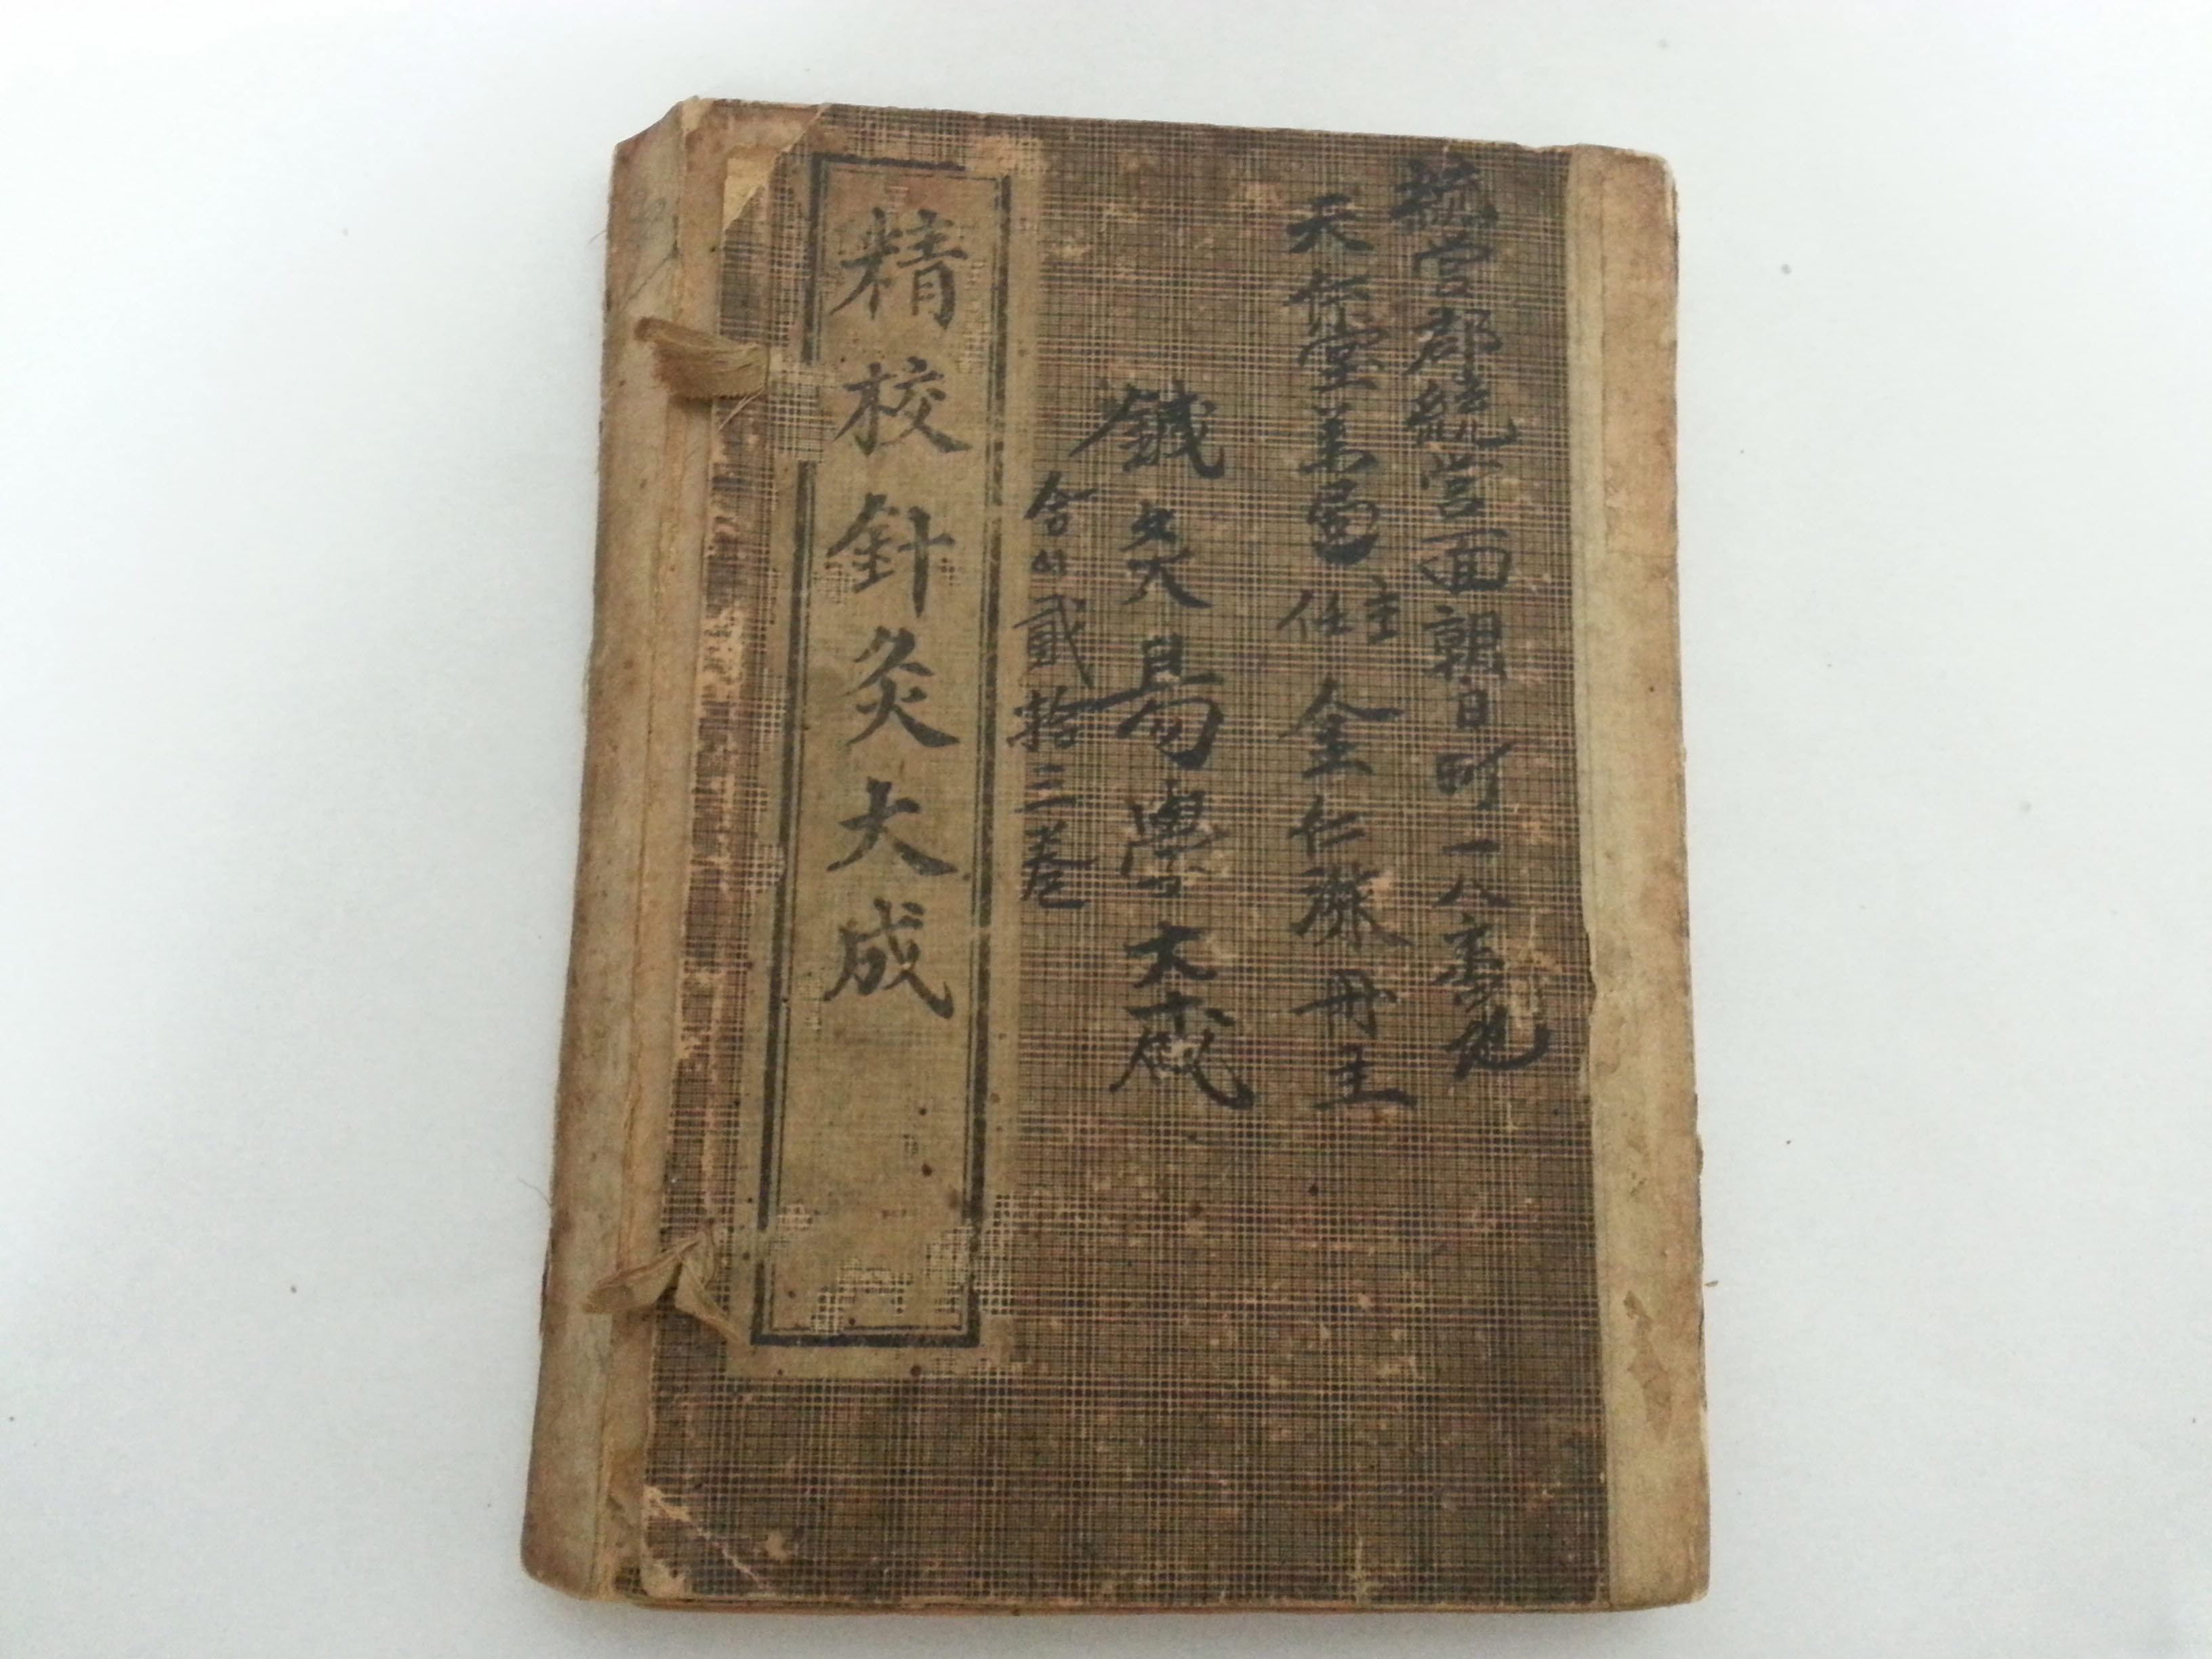 統営郡統営面朝日町一八番地
天堂薬局主任金仁冊主
鍼灸易學大成
合貳拾三卷
精校針灸大成